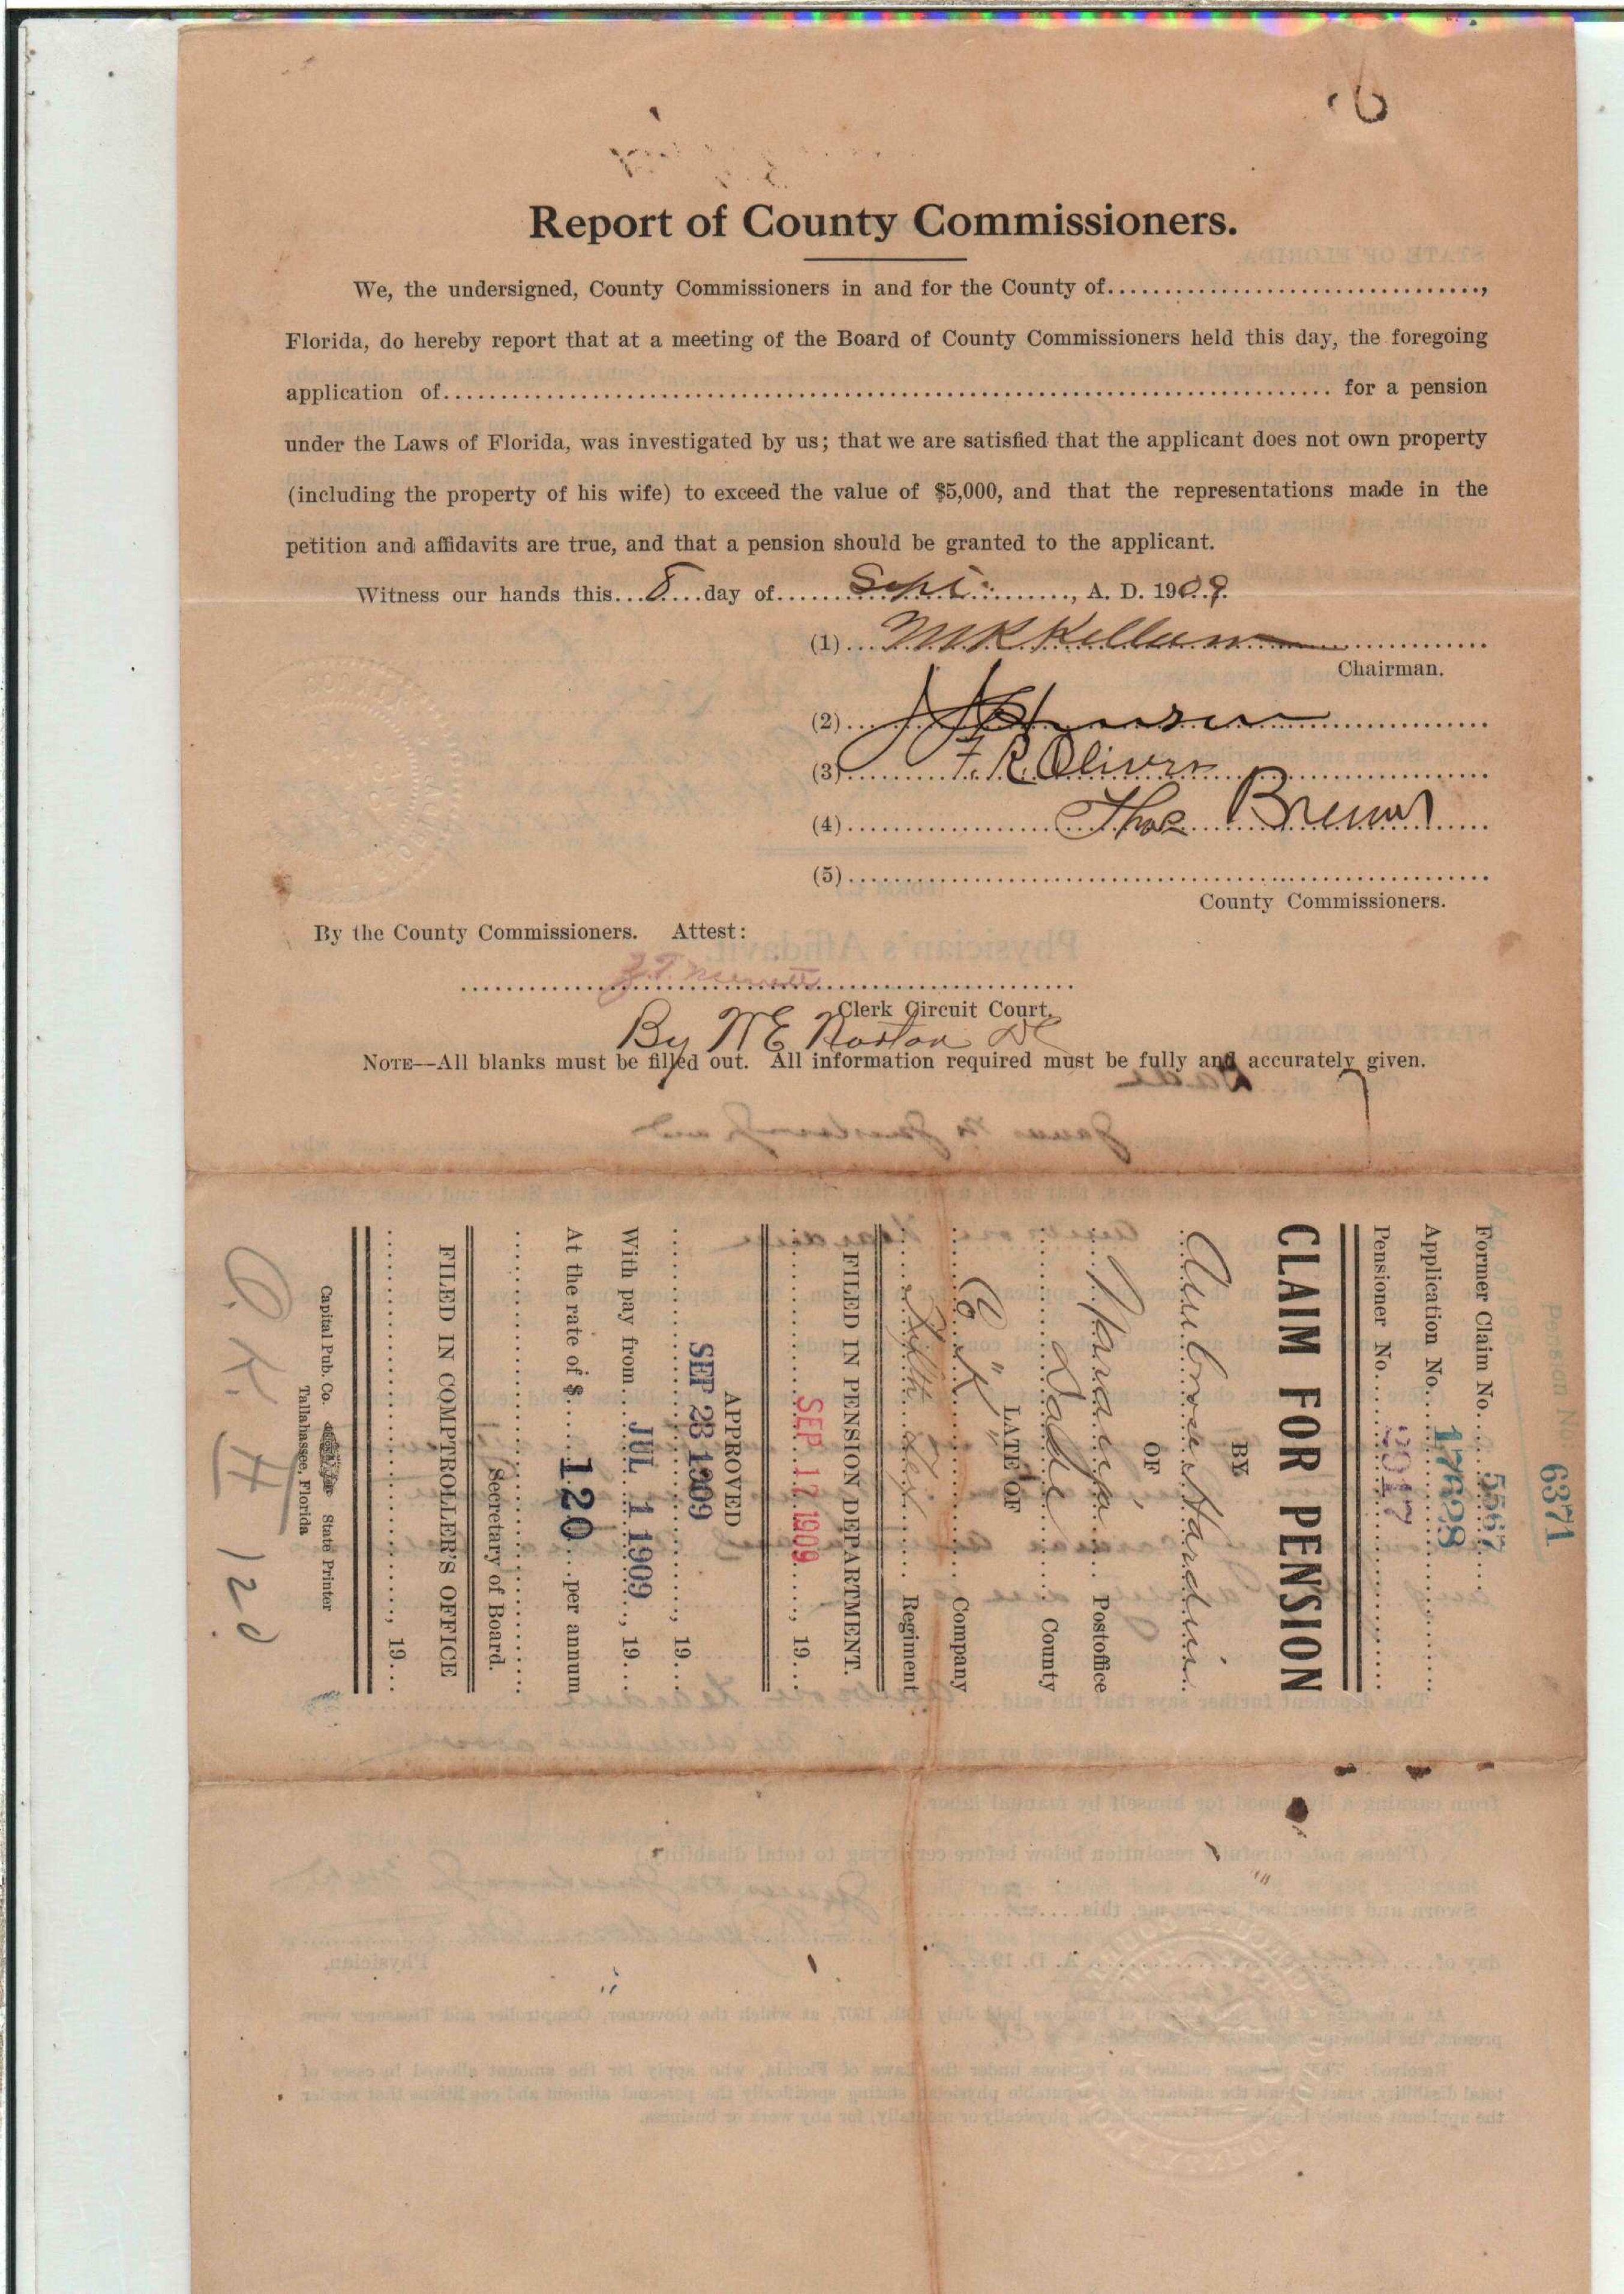 Report of County Commissioners.
We, the undersigned, County Commissioners in and for the County of..............................,
Florida, do hereby report that at a meeting of the Board of County Commissioners held this day, the foregoing
application of.............................. for a pension
under the Laws of Florida, was investigated by us; that we are satisfied that the applicant does not own property
(including the property of his wife) to exceed the value of $5,000, and that the representations made in the
petition and affidavits are true, and that a pension should be granted to the applicant.
Witness our hands this...8....day of.......Sept:.........., A. D. 1909.
(1)....M R Kellum
Chairman.
(2)....
(3)....F. R. Oliver
(4)....Thos Brewer
(5)....
County Commissioners.
By the County Commissioners. Attest:
Z. T. Merritt
Clerk Circuit Court.
By W E Norton DC
NOTE—All blanks must be filled out. All information required must be fully and accurately given.
Pension No. 6371
Former Claim No. 5567
Application No. 17628
Pensioner No.
CLAIM FOR PENSION
BY
Ambrose Hardin
OF
Naranja Postoffice
Dade County
LATE OF
Co "K" Company
Fifth Regiment
FILED IN PENSION DEPARTMENT.
SEP 17 1909, 19...
APPROVED
SEP 28 1909, 19...
With pay from JUL 1 1909, 19...
At the rate of $ 120 per annum
Secretary of Board.
FILED IN COMPTROLLER'S OFFICE
, 19...
Capital Pub. Co. State Printer
Tallahassee, Florida
O. K. 120